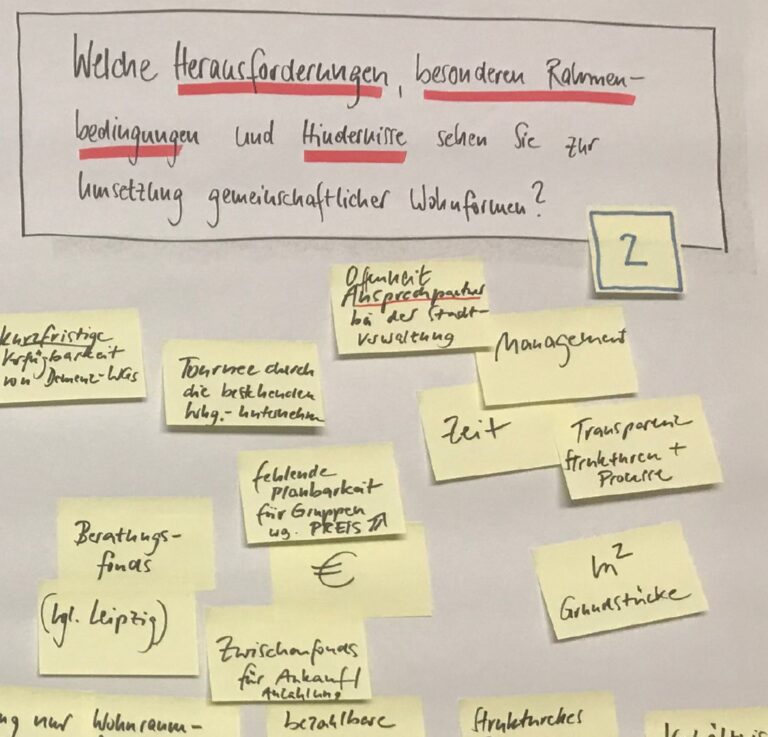 Welche Herausforderungen, besonderen Rahmen-
bedingungen und Hindernisse sehen Sie zur
Umsetzung gemeinschaftlicher Wohnformen?
2
Offenheit
Ansprechpartner
bei der Stadt-
verwaltung
kurzfristige
Verfügbarkeit
von Demenz-WGs
Tournee durch
die bestehenden
Whg.-unternehm
Management
Zeit
Transparenz
Strukturen +
Prozesse
fehlende
Planbarkeit
für Gruppen
wg. PREIS
€
Beratungs-
fonds
(vgl. Leipzig)
m²
Grundstücke
Zwischenfonds
für Ankauf/
Anzahlung
nur Wohnraum-
bezahlbare